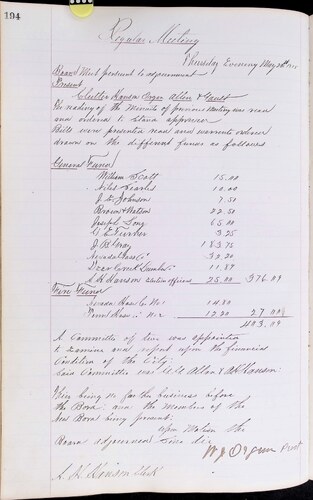 194
Regular Meeting
Thursday Evening May
Board Met persuant to adjournment
Present
Clutter Hanson Organ Allen & Gaust
The reading of the Minutes of previous Meeting was read
and ordered to Stand approved
Bills were presented read and warrants ordered
drawn on the different funds as follows
General Fund
William Scott 15.00
Niles Searls 10.00
J. S. Johnson 7.50
Brown & Watson 22.50
Joseph Long 65.00
G. E. Turner 3.25
J. B. Gray 183.75
Nevada Gas Co 32.20
Deer Creek Lumber Co 11.89
A. K. Hanson Election officers 25.00 376.09
Fire Fund
Nevada Hose Co No 1 14.80
Penn Hose Co No 2 12.20 27.00
403.09
A Committee of two was appointed
to Examine and report upon the financial
Condition of the City:
Said Committee was Allen & Hanson:
There being no further business before
the Board: and the Members of the
New Board being present:
upon Motion the
Board adjourned Sine die
W. J. Organ Prest
A. K. Hanson Clerk